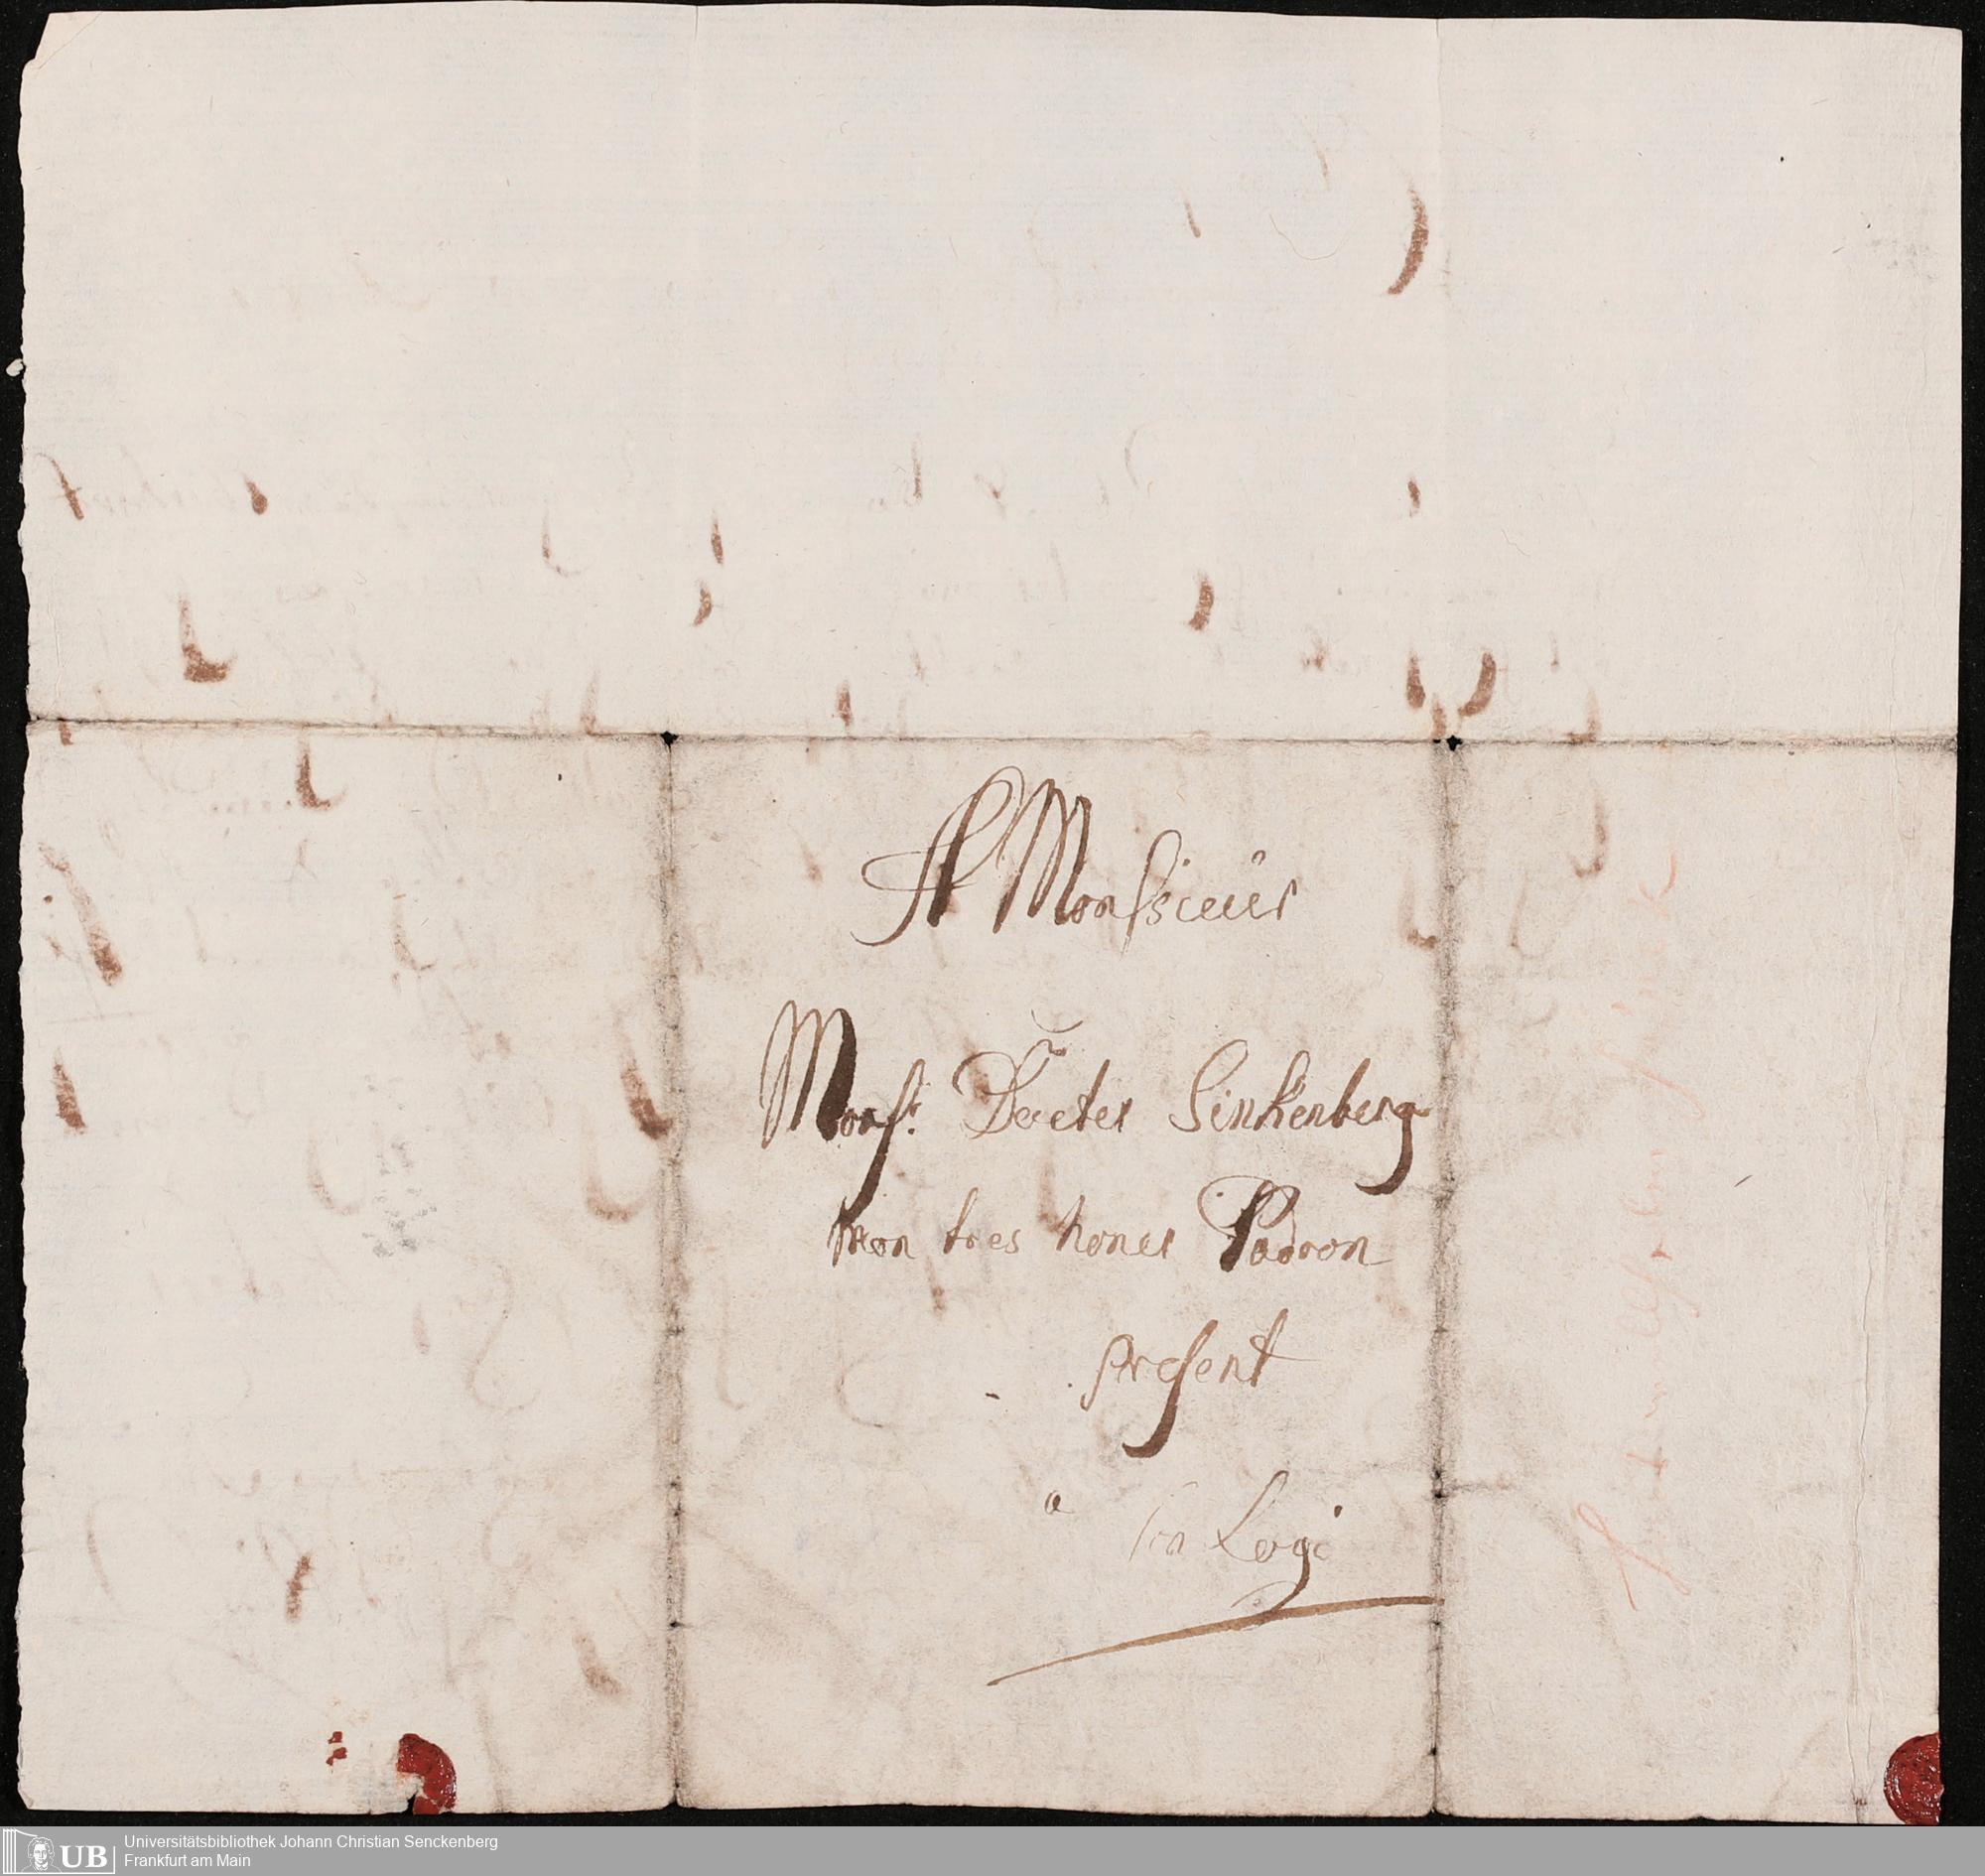 A Monsieür
Mons.r Docter Sinkenberg
mon tres honer Padron
present
a son Logi
Universitätsbibliothek Johann Christian Senckenberg
Frankfurt am Main
UB